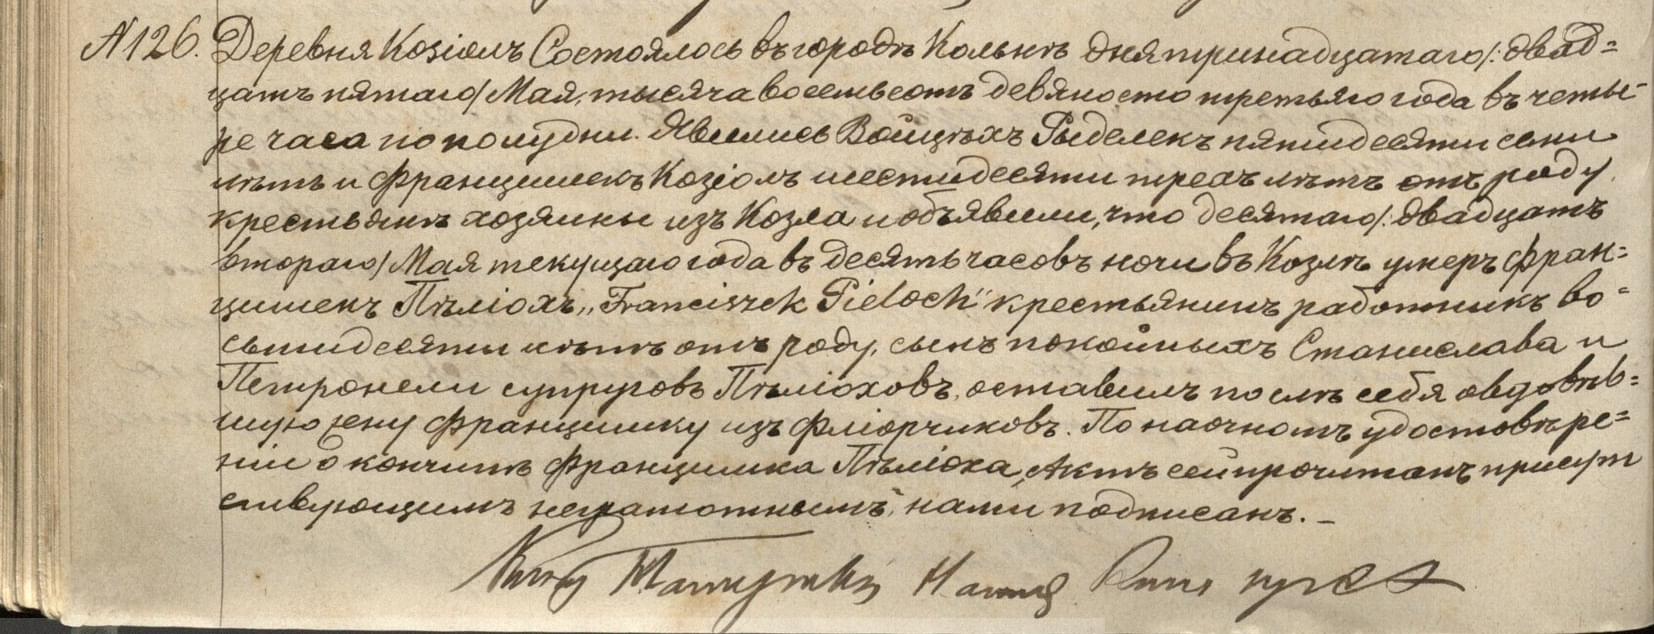 №126. Деревня Козіолъ Состоялось въ городѣ Кольнѣ дня тринадцатаго/: двад=
цать пятаго/ Мая, тысяча восемьсотъ девяносто третьяго года въ четы-
ре часа по полудни. Явились Войцѣхъ Рыделекъ пятидесяти семи
лѣтъ и Францишекъ Козіолъ шестидесяти трехъ лѣтъ отъ роду,
крестьяне хозяины изъ Козла и объявили, что десятаго/: двадцать
втораго/ Мая текущаго года въ десять часовъ ночи въ Козлѣ умеръ Фран=
цишекъ Пѣліохъ „Franciszek Pieloch" крестьянинъ работникъ во=
сьмидесяти лѣтъ отъ роду, сынъ покойныхъ Станислава и
Петронели супруговъ Пѣліоховъ, оставилъ послѣ себя овдовѣв=
шую жену Францишку изъ Фліорчиковъ. По наочномъ удостовѣре=
ніи о кончинѣ Францишка Пѣліоха, Актъ сей прочитанъ присут
ствующимъ неграмотнымъ, нами подписанъ. –